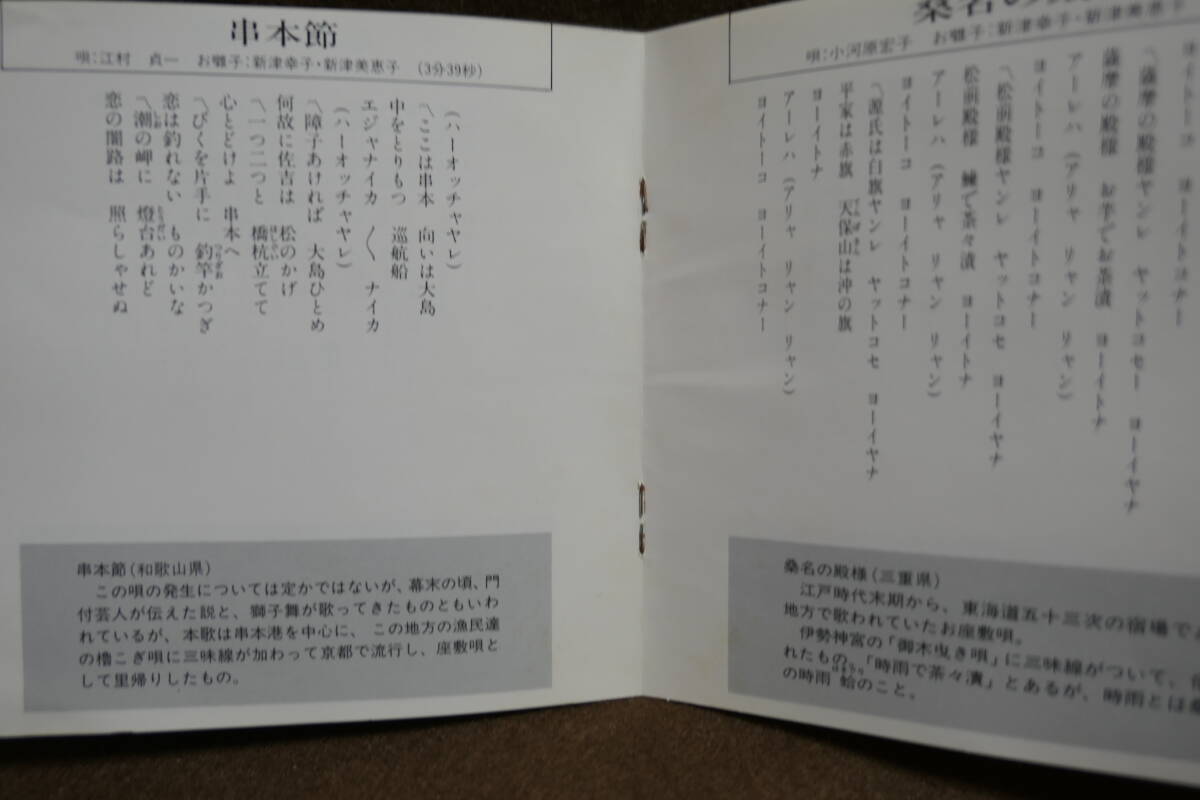 串本節
唄:江村　貞一　お囃子:新津幸子・新津美恵子　(3分39秒)
(ハーオッチャヤレ)
〽ここは串本　向いは大島
中をとりもつ　巡航船
エジャナイカ　〱　ナイカ
(ハーオッチャヤレ)
〽障子あければ　大島ひとめ
何故に佐吉は　松のかげ
〽一つ二つと　橋杭立てて
心とどけよ　串本へ
〽びくを片手に　釣竿かつぎ
恋は釣れない　ものかいな
〽潮の岬に　燈台あれど
恋の闇路は　照らしゃせぬ
串本節(和歌山県)
この唄の発生については定かではないが、幕末の頃、門
付芸人が伝えた説と、獅子舞が歌ってきたものともいわ
れているが、本歌は串本港を中心に、この地方の漁民達
の櫓こぎ唄に三味線が加わって京都で流行し、座敷唄と
して里帰りしたもの。
唄:小河原宏子　お囃子:新津幸子・新津美恵子
ヨイトーコ　ヨーイトコナー
〽薩摩の殿様ヤンレ　ヤットコセー　ヨーイヤナ
薩摩の殿様　お芋でお茶漬　ヨーイトナ
アーレハ(アリャ　リャン　リャン)
ヨイトーコ　ヨーイトコナー
〽松前殿様ヤンレ　ヤットコセ　ヨーイヤナ
松前殿様　鰊で茶々漬　ヨーイトナ
アーレハ(アリャ　リャン　リャン)
ヨイトーコ　ヨーイトコナー
〽源氏は白旗ヤンレ　ヤットコセ　ヨーイヤナ
平家は赤旗　天保山は沖の旗
ヨーイトナ
アーレハ(アリャ　リャン　リャン)
ヨイトーコ　ヨーイトコナー
桑名の殿様(三重県)
江戸時代末期から、東海道五十三次の宿場で
地方で歌われていたお座敷唄。
伊勢神宮の「御木曳き唄」に三味線がついて、
れたもの。「時雨で茶々漬」とあるが、時雨とは
の時雨蛤のこと。